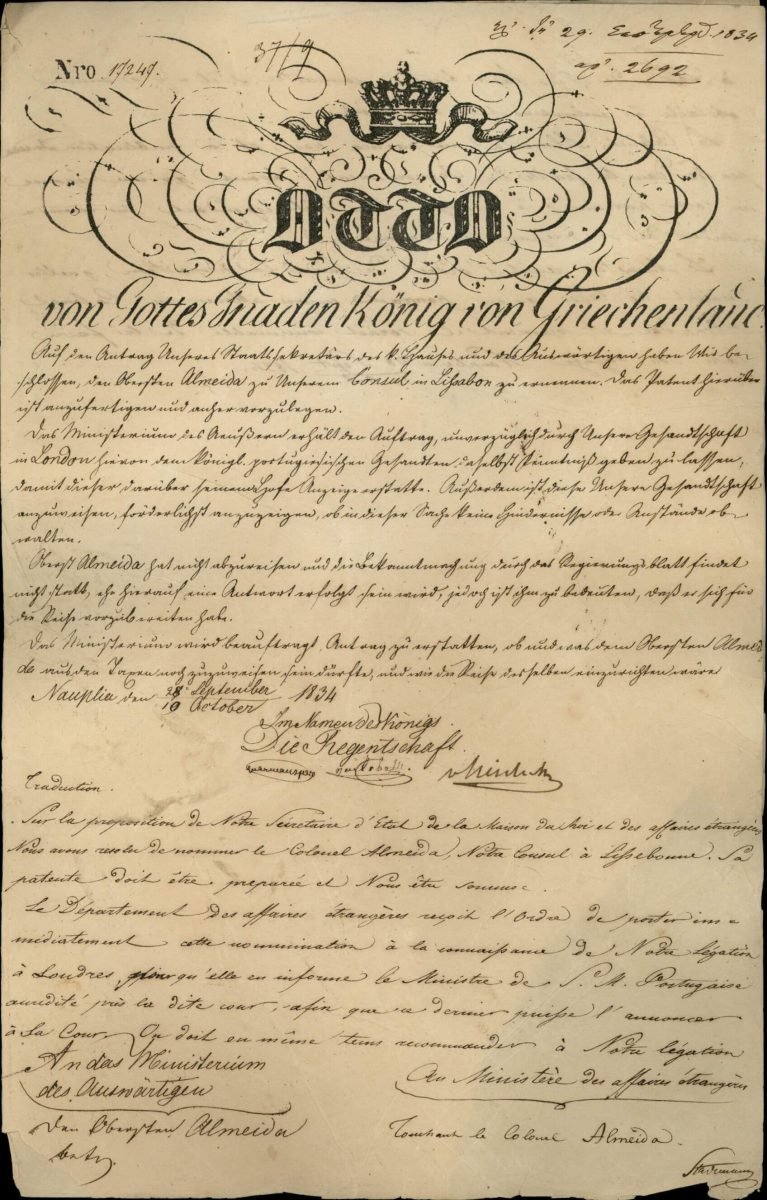 Nro 17247.
37/9
29. 7βρίου 1834
ἀρ. 2692
OTTO
von Gottes Gnaden König von Griechenland.
Auf den Antrag Unseres Staatssekretärs des k. Hauses und des Auswärtigen haben Wir be-
schlossen, den Obersten Almeida zu Unserem Consul in Lissabon zu ernennen. Das Patent hierüber
ist anzufertigen und anher vorzulegen.
Das Ministerium des Aeußern erhält den Auftrag, unverzüglich durch Unsere Gesandtschaft
in London hievon dem königl. portugiesischen Gesandten daselbst Kenntniß geben zu lassen,
damit dieser darüber seinem Hofe Anzeige erstatte. Außerdem ist diese Unsere Gesandtschaft
anzuweisen, förderlichst anzuzeigen, ob in dieser Sache keine Hindernisse oder Anstände ob-
walten.
Oberst Almeida hat nicht abzureisen und die Bekanntmachung durch das Regierungsblatt findet
nicht statt, ehe hierauf eine Antwort erfolgt sein wird, jedoch ist ihm zu bedeuten, daß er sich für
die Reise vorzubereiten habe.
Das Ministerium wird beauftragt Antrag zu erstatten, ob und was dem Obersten Almei-
da aus den Taxen noch zuzuweisen sein dürfte, und wie die Reise desselben einzurichten wäre
Nauplia den 28 September / 10 October 1834
Im Namen des Königs.
Die Regentschaft.
Armansperg v. Kobell. v Heideck
Traduction.
Sur la proposition de Notre Sécretaire d'Etat de la Maison du Roi et des affaires étrangères
Nous avons resolu de nommer le Colonel Almeida, Notre Consul à Lissebonne. Sa
patente doit être preparée et Nous être soumise.
Le Département des affaires étrangères reçoit l'Ordre de porter im=
médiatement cette nommination à la connaissance de Notre légation
à Londres, qu'elle en informe le Ministre de S. M. Portugaise
accrédité près la dite cour, afin que ce dernier puisse l'annoncer
à Sa Cour. On doit en même tems recommander à Notre légation
An das Ministerium
des Auswärtigen
Au Ministère des affaires étrangères
Den Obersten Almeida
betr.
Touchant le Colonel Almeida.